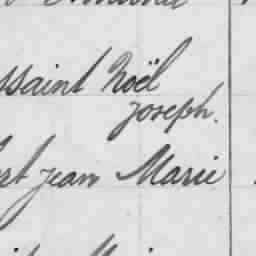 ssaint Noël
Joseph.
rt Jean Marie